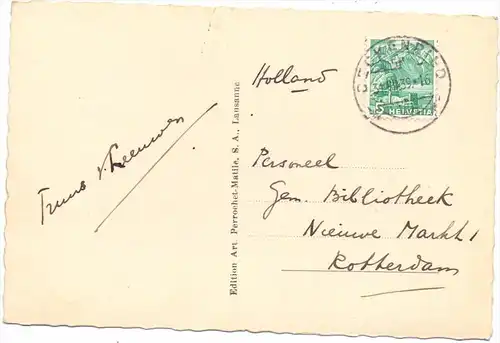 Holland
BECKENRIED
5 HELVETIA
Truus v. Leeuwen
Edition Art. Perrochet-Matile, S. A., Lausanne
Personeel
Gem. Bibliotheek
Nieuwe Markt 1
Rotterdam